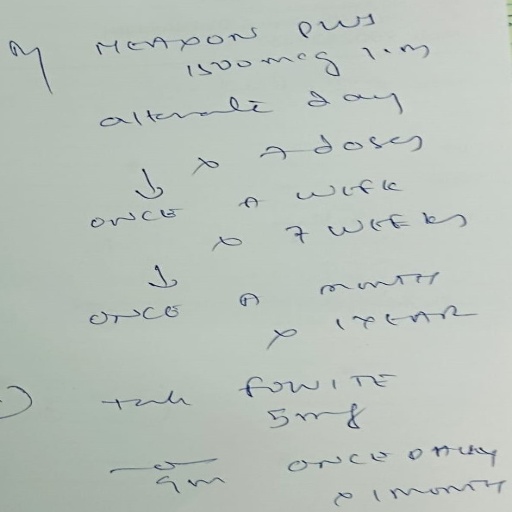 MEAXON PLUS
1500 mcg I.M
alternate day
x 7 doses
↓
ONCE A WEEK
x 7 WEEKS
↓
ONCE A MONTH
x 1 YEAR
FOLVITE
5mg
ONCE DAILY
x 1 MONTH